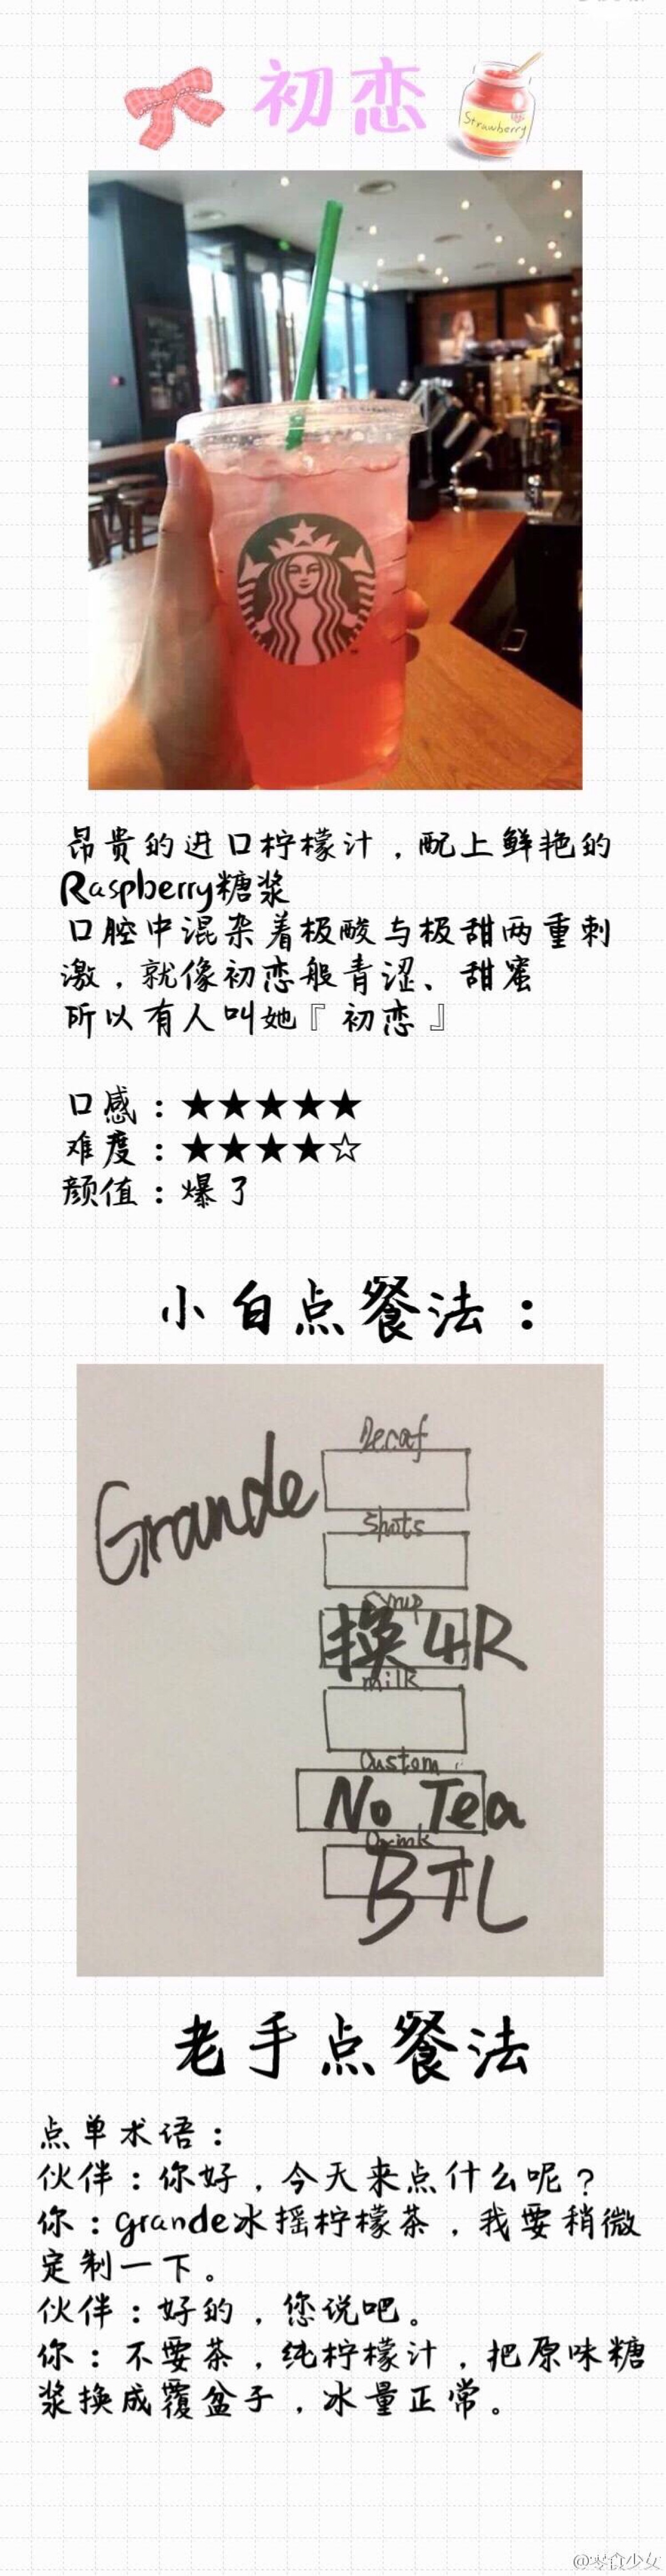 初恋
Strawberry
昂贵的进口柠檬汁，配上鲜艳的
Raspberry糖浆
口腔中混杂着极酸与极甜两重刺
激，就像初恋般青涩、甜蜜
所以有人叫她『初恋』
口感：★★★★★
难度：★★★★☆
颜值：爆了
小白点餐法：
Decaf
Grande
Shots
Syrup
换4R
milk
Custom
No Tea
Drink
BTL
老手点餐法
点单术语：
伙伴：你好，今天来点什么呢？
你：grande冰摇柠檬茶，我要稍微
定制一下。
伙伴：好的，您说吧。
你：不要茶，纯柠檬汁，把原味糖
浆换成覆盆子，冰量正常。
@零食少女